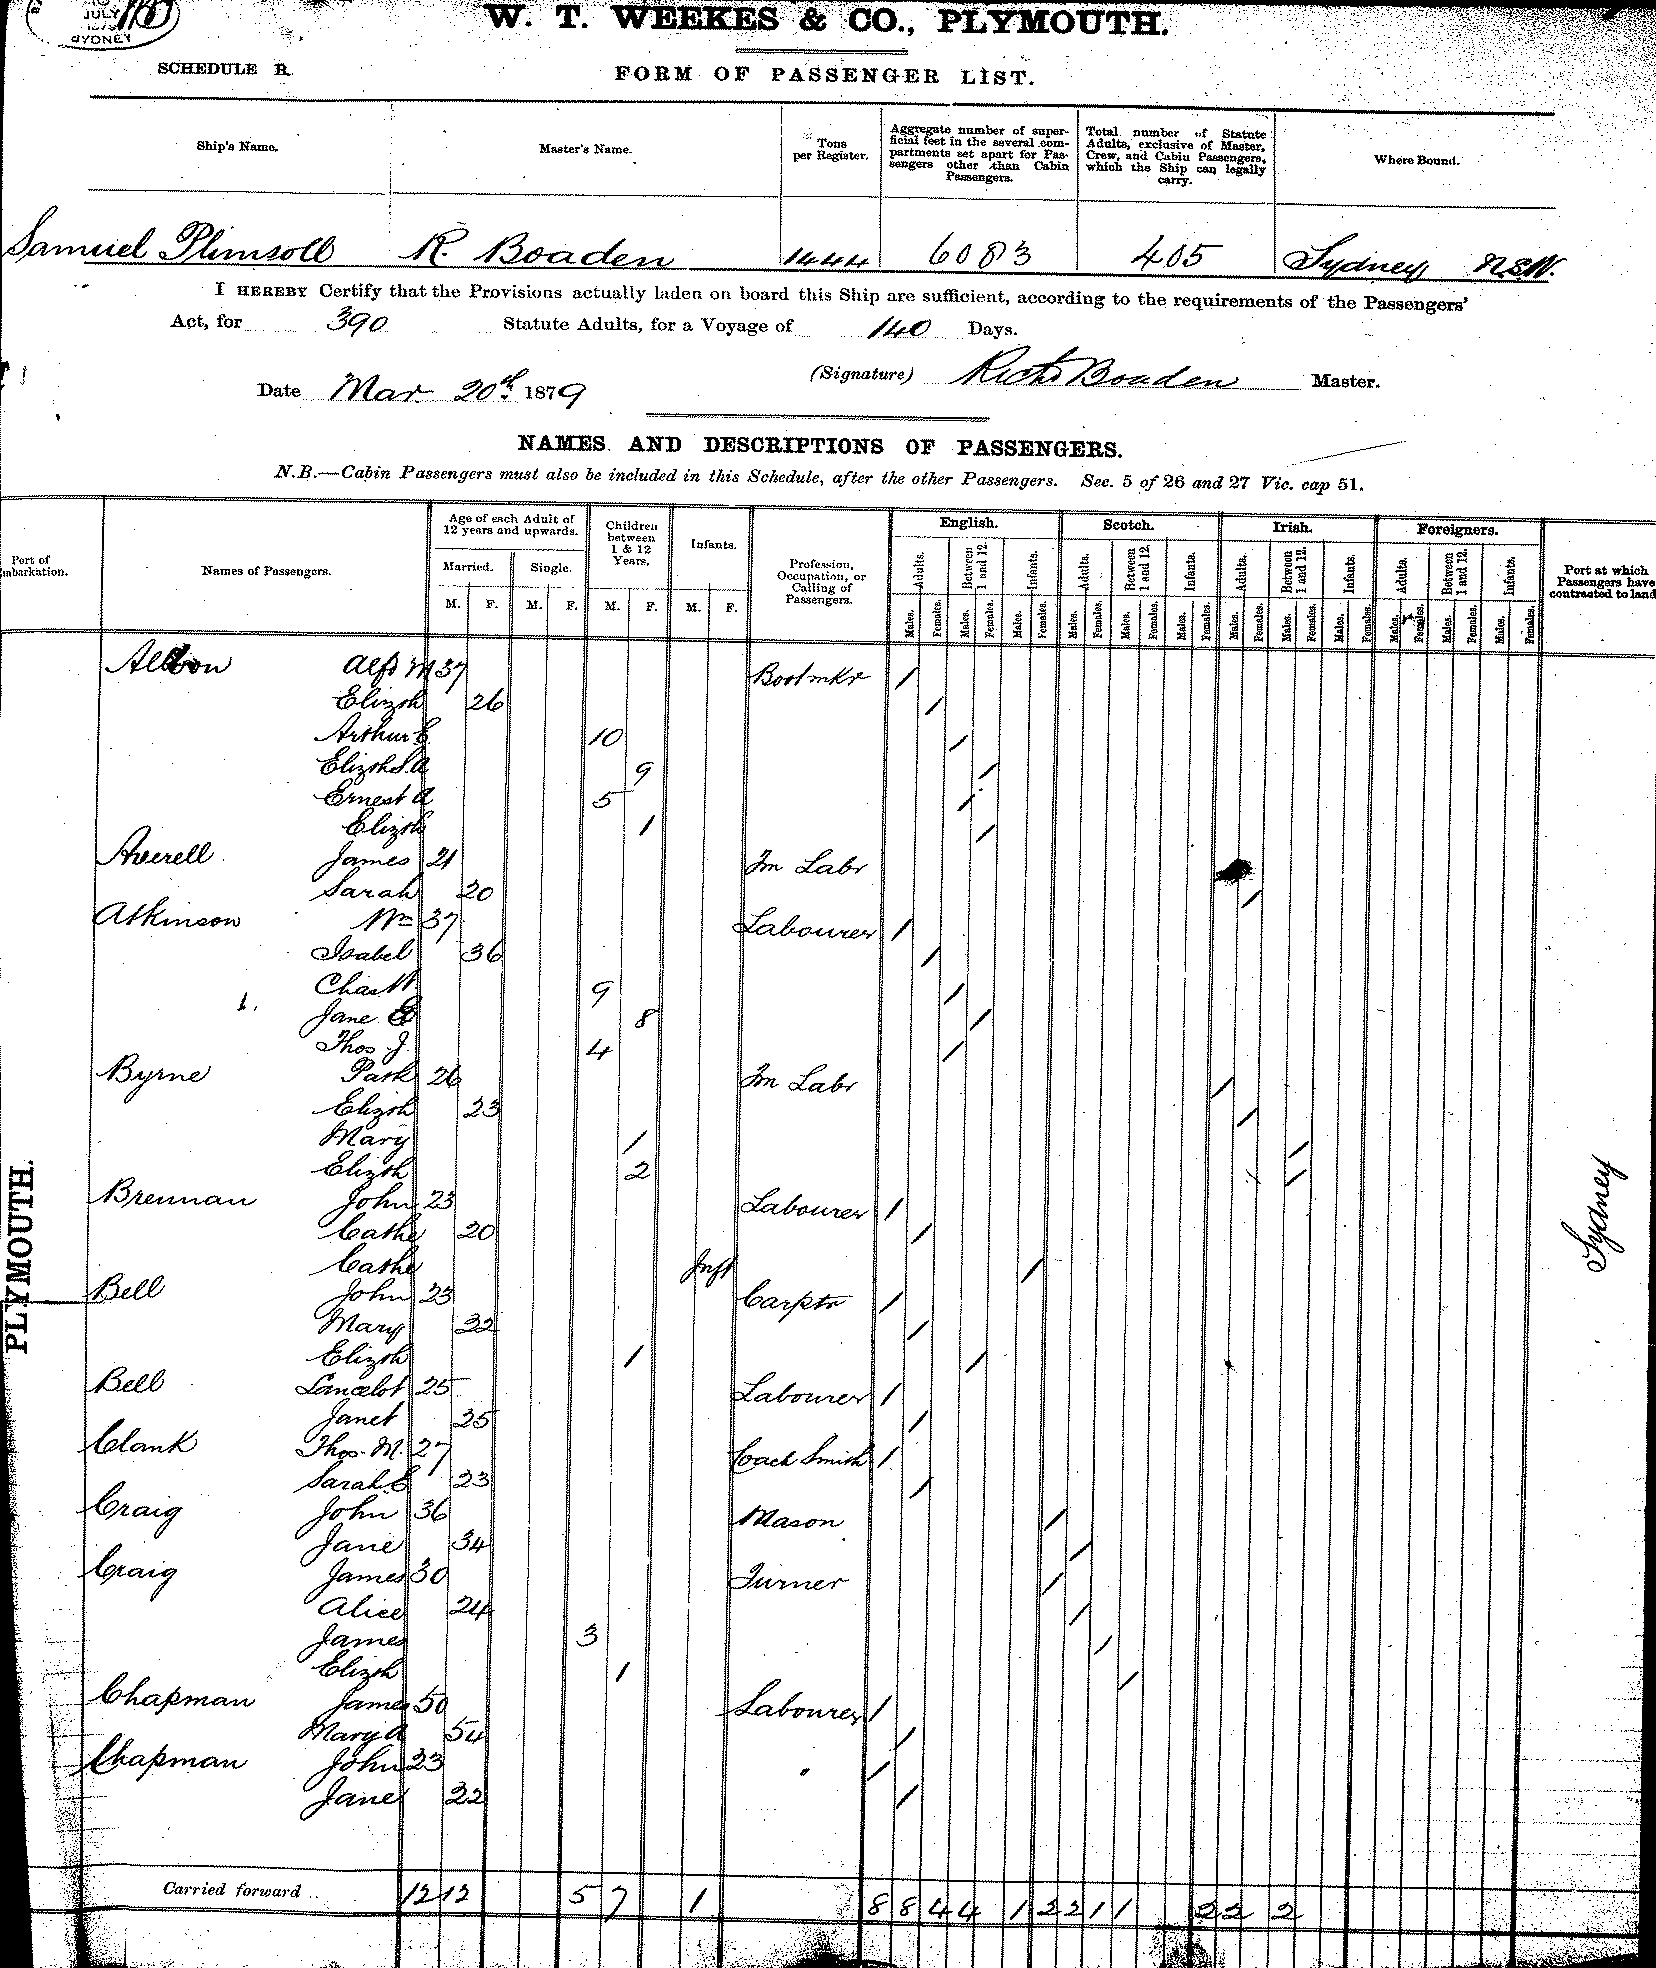 JULY
SYDNEY
W. T. WEEKES & CO., PLYMOUTH.
SCHEDULE B.
FORM OF PASSENGER LIST.
Ship's Name. Master's Name. Tons per Register. Aggregate number of superficial feet in the several compartments set apart for Passengers other than Cabin Passengers. Total number of Statute Adults, exclusive of Master, Crew, and Cabin Passengers, which the Ship can legally carry. Where Bound.
Samuel Plimsoll R. Boaden 1444 6083 405 Sydney NSW.
I HEREBY Certify that the Provisions actually laden on board this Ship are sufficient, according to the requirements of the Passengers'
Act, for 390 Statute Adults, for a Voyage of 140 Days.
(Signature) Richd Boaden Master.
Date Mar 20th 1879
NAMES AND DESCRIPTIONS OF PASSENGERS.
N.B.—Cabin Passengers must also be included in this Schedule, after the other Passengers. Sec. 5 of 26 and 27 Vic. cap 51.
Port of Embarkation. Names of Passengers. Age of each Adult of 12 years and upwards. Children between 1 & 12 Years. Infants. Profession, Occupation, or Calling of Passengers. English. Scotch. Irish. Foreigners. Port at which Passengers have contracted to land
Married. Single. Adults. Between 1 and 12. Infants. Adults. Between 1 and 12. Infants. Adults. Between 1 and 12. Infants. Adults. Between 1 and 12. Infants.
M. F. M. F. M. F. M. F. Males. Females. Males. Females. Males. Females. Males. Females. Males. Females. Males. Females. Males. Females. Males. Females. Males. Females. Males. Females. Males. Females. Males. Females.
Alfd M 37 Bootmkr /
Elizth 26 /
Arthur E 10 /
Elizth S.A 9 /
Ernest A 5 /
Elizth 1 /
Averell James 21 Fm Labr
Sarah 20 /
Atkinson Wm 37 Labourer /
Isabel 36 /
Chas W 9 /
Jane E 8 /
Thos J. 4 /
Byrne Patk 26 Fm Labr /
Elizth 23 /
Mary 1 /
Elizth 2 /
Brennan John 23 Labourer /
Cathe 20 /
Cathe Inft /
Bell John 23 Carptr /
Mary 22 /
Elizth 1 /
Bell Lancelot 25 Labourer /
Janet 25 /
Clark Thos. M. 27 Coach Smith /
Sarah E 23 /
Craig John 36 Mason /
Jane 34 /
Craig James 30 Turner /
Alice 24 /
James 3 /
Elizth 1 /
Chapman James 50 Labourer /
Mary A 54 /
Chapman John 23 " /
Jane 22 /
PLYMOUTH.
Sydney
Carried forward 12 12 5 7 1 8 8 4 4 1 2 2 1 1 2 2 2